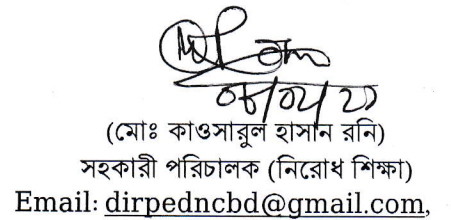 (মোঃ কাওসারুল হাসান রনি)
সহকারী পরিচালক (নিরোধ শিক্ষা)
Email: dirpedncbd@gmail.com,